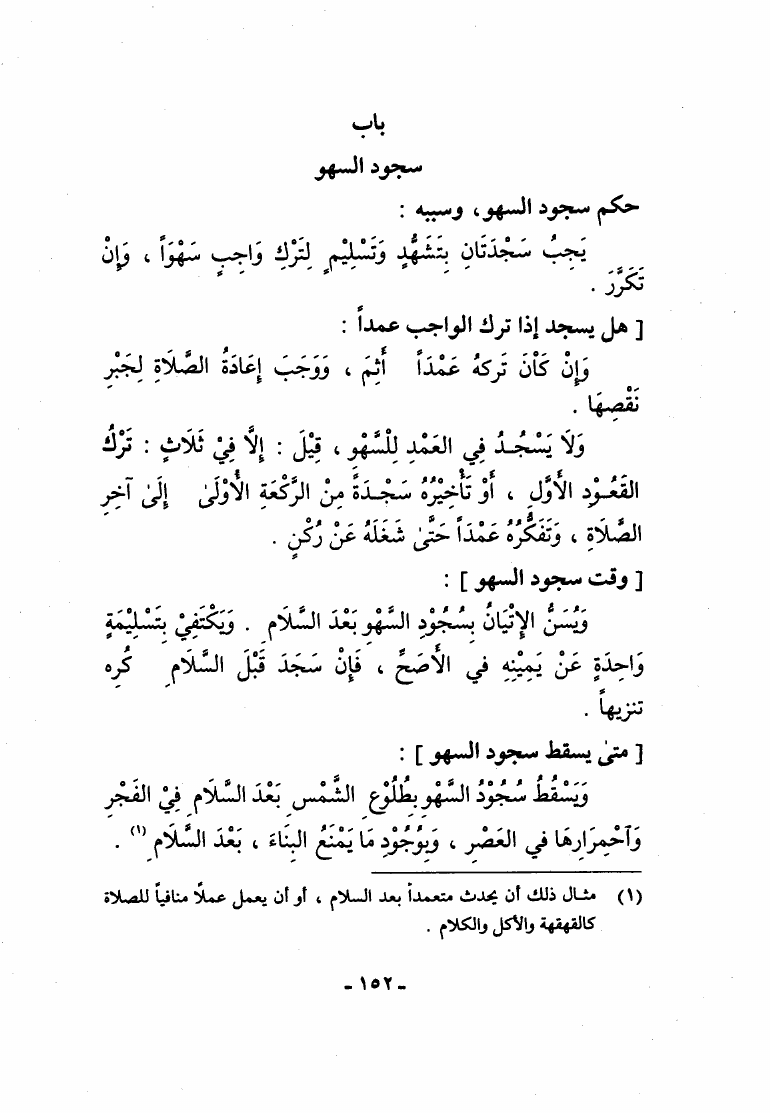 باب
سجود السهو
حكم سجود السهو، وسببه :
يَجِبُ سَجْدَتَانِ بِتَشَهُّدٍ وَتَسْلِيْمٍ لِتَرْكِ وَاجِبٍ سَهْوَاً ، وَإِنْ
تَكَرَّرَ .
[ هل يسجد إذا ترك الواجب عمداً :
وَإِنْ كَانَ تَركهُ عَمْدَاً أَثِمَ ، وَوَجَبَ إِعَادَةُ الصَّلَاةِ لِجَبْرِ
نَقْصِهَا .
وَلَا يَسْجُدُ فِي العَمْدِ لِلْسَّهْوِ ، قِيْلَ : إِلَّا فِيْ ثَلَاثٍ : تَرْكُ
القَعُوْدِ الأَوَّلِ ، أَوْ تَأْخِيْرُهُ سَجْدَةً مِنْ الرَّكْعَةِ الأُوْلَىٰ إِلَىٰ آخِرِ
الصَّلَاةِ ، وَتَفَكُّرُهُ عَمْدَاً حَتَّىٰ شَغَلَهُ عَنْ رُكْنٍ .
[ وقت سجود السهو ] :
وَيُسَنُّ الإِتْيَانُ بِسُجُوْدِ السَّهْوِ بَعْدَ السَّلَامِ . وَيَكْتَفِيْ بِتَسْلِيْمَةٍ
وَاحِدَةٍ عَنْ يَمِيْنِهِ في الأَصَحِّ ، فَإِنْ سَجَدَ قَبْلَ السَّلَامِ كُرِه
تنزيهاً .
[ متىٰ يسقط سجود السهو ] :
وَيَسْقُطُ سُجُوْدُ السَّهْوِ بِطُلُوْعِ الشَّمْسِ بَعْدَ السَّلَامِ فِيْ الفَجْرِ
وَآحْمِرَارِهَا في العَصْرِ ، وَبِوُجُوْدِ مَا يَمْنَعُ البِنَاءَ ، بَعْدَ السَّلَامِ (١) .
(١) مثال ذلك أن يحدث متعمداً بعد السلام ، أو أن يعمل عملاً منافياً للصلاة
كالقهقهة والأكل والكلام .
- ١٥٢ -